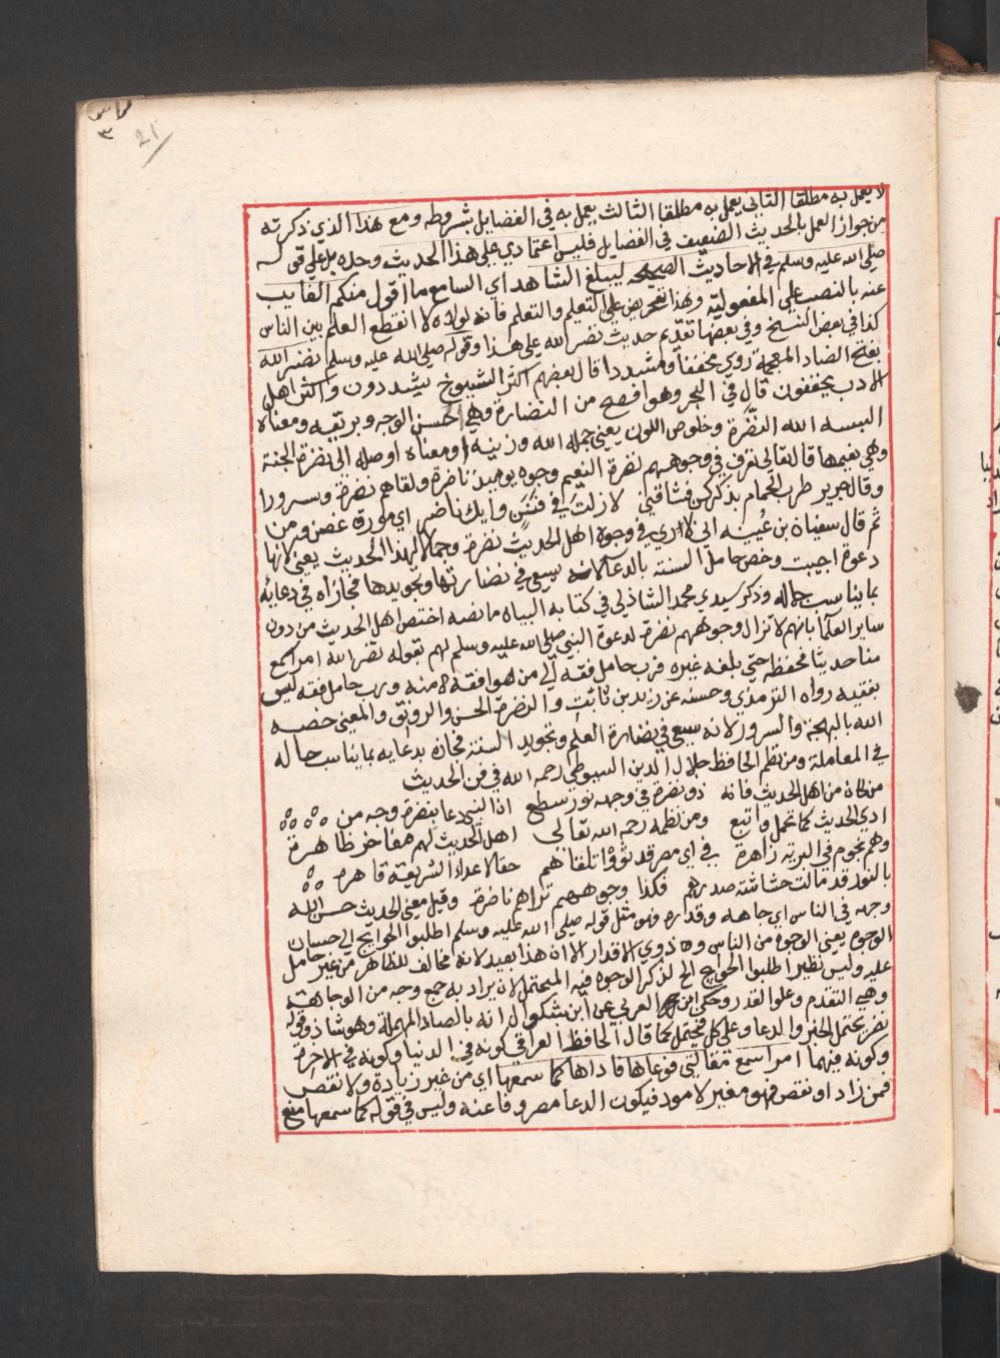 كراس
٣
21
لا يعمل به مطلقا الثاني يعمل به مطلقا الثالث يعمل به في الفضايل بشروطه ومع هذا الذي ذكرته
من جواز العمل بالحديث الضعيف في الفضايل فليس اعتمادي على هذا الحديث وحده بل على قوله
صلى الله عليه وسلم في الاحاديث الصحيحه ليبلغ الشاهد اي السامع ما اقول منكم الغايب
عنه بالنصب على المفعولية وهذا تحريض على التعلم والتعلم فانه لولاه لا انقطع العلم بين الناس
كذا في بعض النسخ وفي بعضها تقديم حديث نضر الله على هذا وقوله صلى الله عليه وسلم نضر الله
بفتح الضاد المعجمة روي مخففا ومشددا قال بعضهم اكثر الشيوخ يشددون واكثر اهل
الادب يخففون قال في البحر وهو افصح من النضارة وهي حسن الوجه وبريقه ومعناه
البسه الله النضرة وخلوص اللون يعني جمله الله وزينه او معناه اوصله الى نضرة الجنة
وهي نعيمها قال تعالى تعرف في وجوههم نضرة النعيم وجوه يوميذ ناضرة ولقاهم نضرة وسرورا
وقال جرير طرب الحمام بذكركن فشاقني لا زلت في فنن وايك ناضر اي مورق غصن ومن
ثم قال سفيان بن عيينه اني لا اري في وجوه اهل الحديث نضرة وجمالا لهذا الحديث يعني لانها
دعوة اجيبت وخص حامل السنة بالدعا لانه سعى في نضارتها وتجويدها فجازاه في دعايه
بما يناسب حاله وذكر سيدي محمد الشاذلي في كتابه البيان ما نصه اختص اهل الحديث من دون
ساير العلما بانهم لا تزال وجوههم نضرة لدعوة النبي صلى الله عليه وسلم لهم بقوله نضر الله امرا سمع
منا حديثا فحفظه حتى بلغه غيره فرب حامل فقه الى من هو افقه منه ورب حامل فقه ليس
بفقيه رواه الترمذي وحسنه عن زيد بن ثابت والنضرة الحسن والرونق والمعنى خصه
الله بالبهجة والسرور لانه سعى في نضارة العلم وتجويد السنة فجازه بدعايه بما يناسب حاله
في المعاملة ومن نظم الحافظ جلال الدين السيوطي رحمه الله في فن الحديث
من كان من اهل الحديث فانه ذو نضرة في وجهه نور سطع ان النبي دعا بنضرة وجه من
ادى الحديث كما تحمل واتبع ومن نظمه رحمه الله تعالى اهل الحديث لهم مفاخر ظاهرة
وهم نجوم في البرية زاهرة في اي مصر قد ثووا تلقاهم حقا لاعداء الشريعة قاهره
بالنور قد ملات حشاشة صدرهم فكذا وجوههم تراهم ناضرة وقيل معنى الحديث حسن الله
وجهه في الناس اي جاهه وقدره فهو مثل قوله صلى الله عليه وسلم اطلبوا الحوايج الى حسان
الوجوه يعني الوجوه من الناس وذوي الاقدار الا ان هذا بعيد لانه مخالف للظاهر من غير حامل
عليه وليس نظير اطلبوا الحوايج الخ لذكر الوجوه فيه المحتمل لان يراد به جمع وجه من الوجاهة
وهي التقدم وعلو القدر وحكي ابن العربي عن ابن بشكوال انه بالصاد المهملة وهو شاذ وقوله
نضر يحتمل الخبر والدعا وعلى كل فيحتمل كما قال الحافظ العراقي كونه في الدنيا وكونه في الاخرة
وكونه فيهما امرا سمع مقالتي فوعاها فاداها كما سمعها اي من غير زيادة ولا نقص
فمن زاد او نقص فهو مغير لا مود فيكون الدعا مصروفا عنه وليس في قوله كما سمعها منع